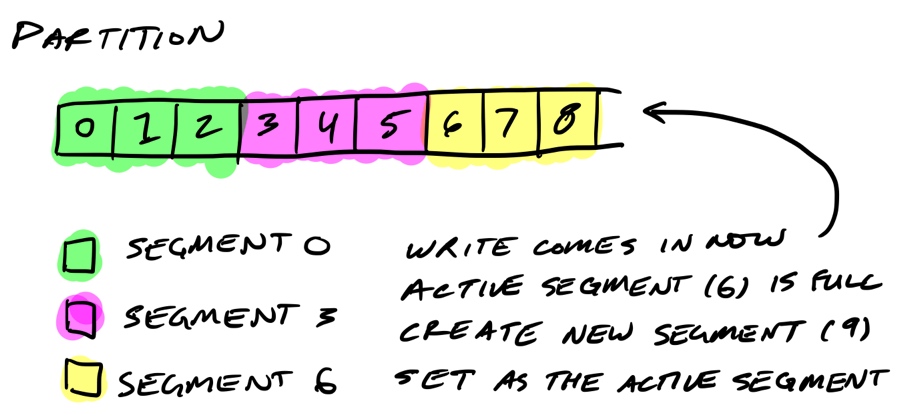 PARTITION
0 1 2 3 4 5 6 7 8
SEGMENT 0
SEGMENT 3
SEGMENT 6
WRITE COMES IN NOW
ACTIVE SEGMENT (6) IS FULL
CREATE NEW SEGMENT (9)
SET AS THE ACTIVE SEGMENT